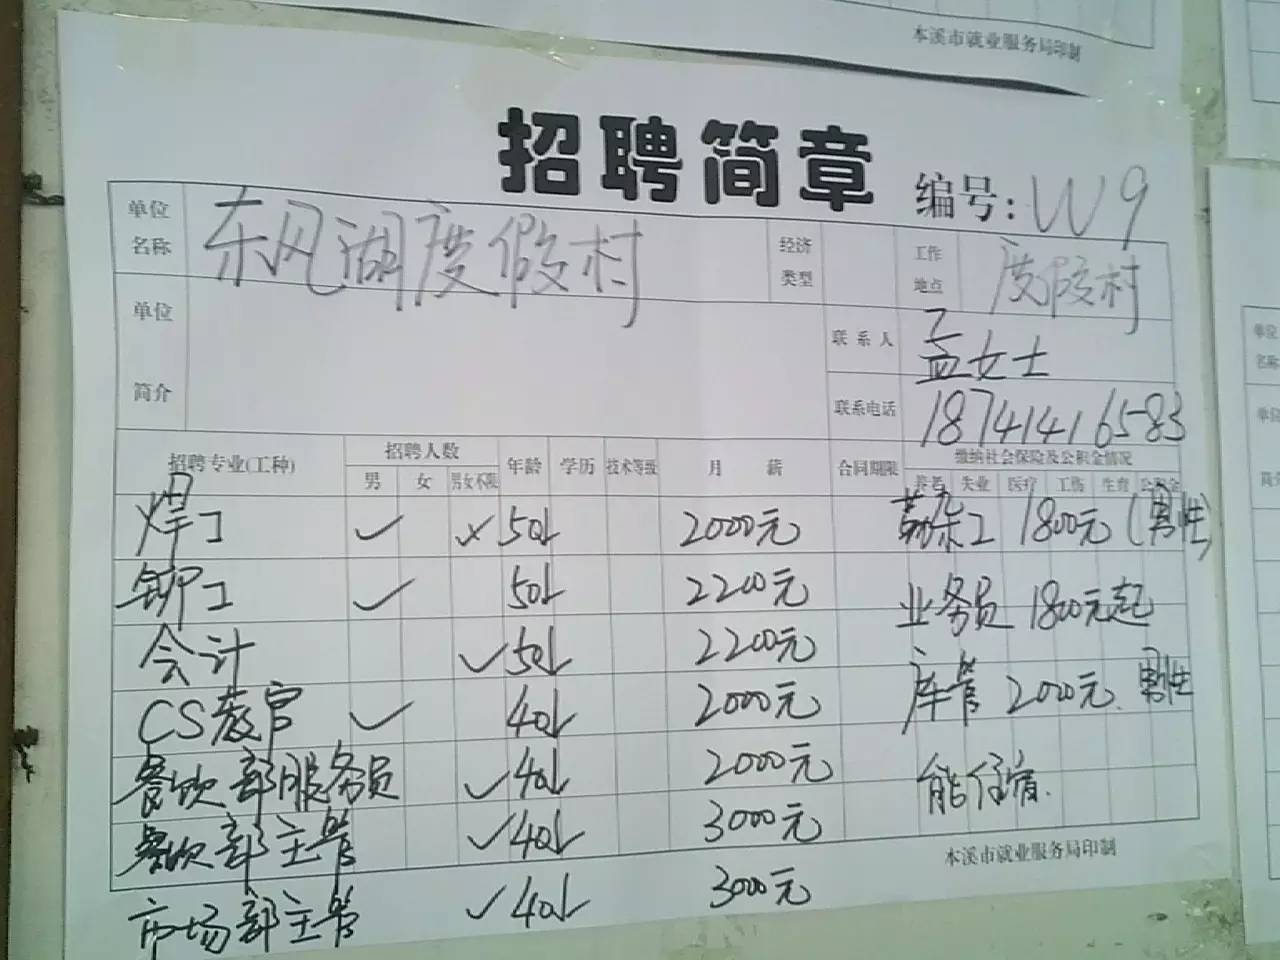 本溪市就业服务局印制
招聘简章
编号: W9
单位名称 东风湖度假村 经济类型 工作地点 度假村
单位简介 联系人 孟女士
联系电话 18741416583
招聘专业(工种) 招聘人数 年龄 学历 技术等级 月薪 合同期限 缴纳社会保险及公积金情况
男 女 男女不限 养老 失业 医疗 工伤 生育 公积金
焊工 ✓ × 50以 2000元 勤杂工 1800元 (男性)
铆工 ✓ 50以 2200元 业务员 1800元起
会计 ✓ 50以 2200元 库管 2000元. 男性
CS教官 ✓ 40以 2000元
餐饮部服务员 ✓ 40以 2000元 能住宿.
餐饮部主管 ✓ 40以 3000元
市场部主管 ✓ 40以 3000元
本溪市就业服务局印制
单位
名称
单位